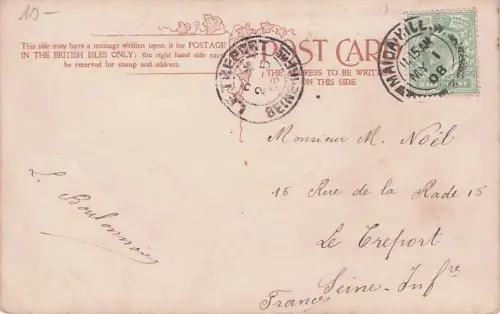 10-
This side may have a message written upon it for POSTAGE
IN THE BRITISH ISLES ONLY; the right hand side must
be reserved for stamp and address.
POST CARD
THE ADDRESS TO BE WRITTEN
ON THIS SIDE.
MAIDA HILL. W
11.15 AM
1
08
LE TREPORT
SEINE
Monsieur M. Noël
16 Rue de la Rade 16
Le Treport
Seine-Infre
France